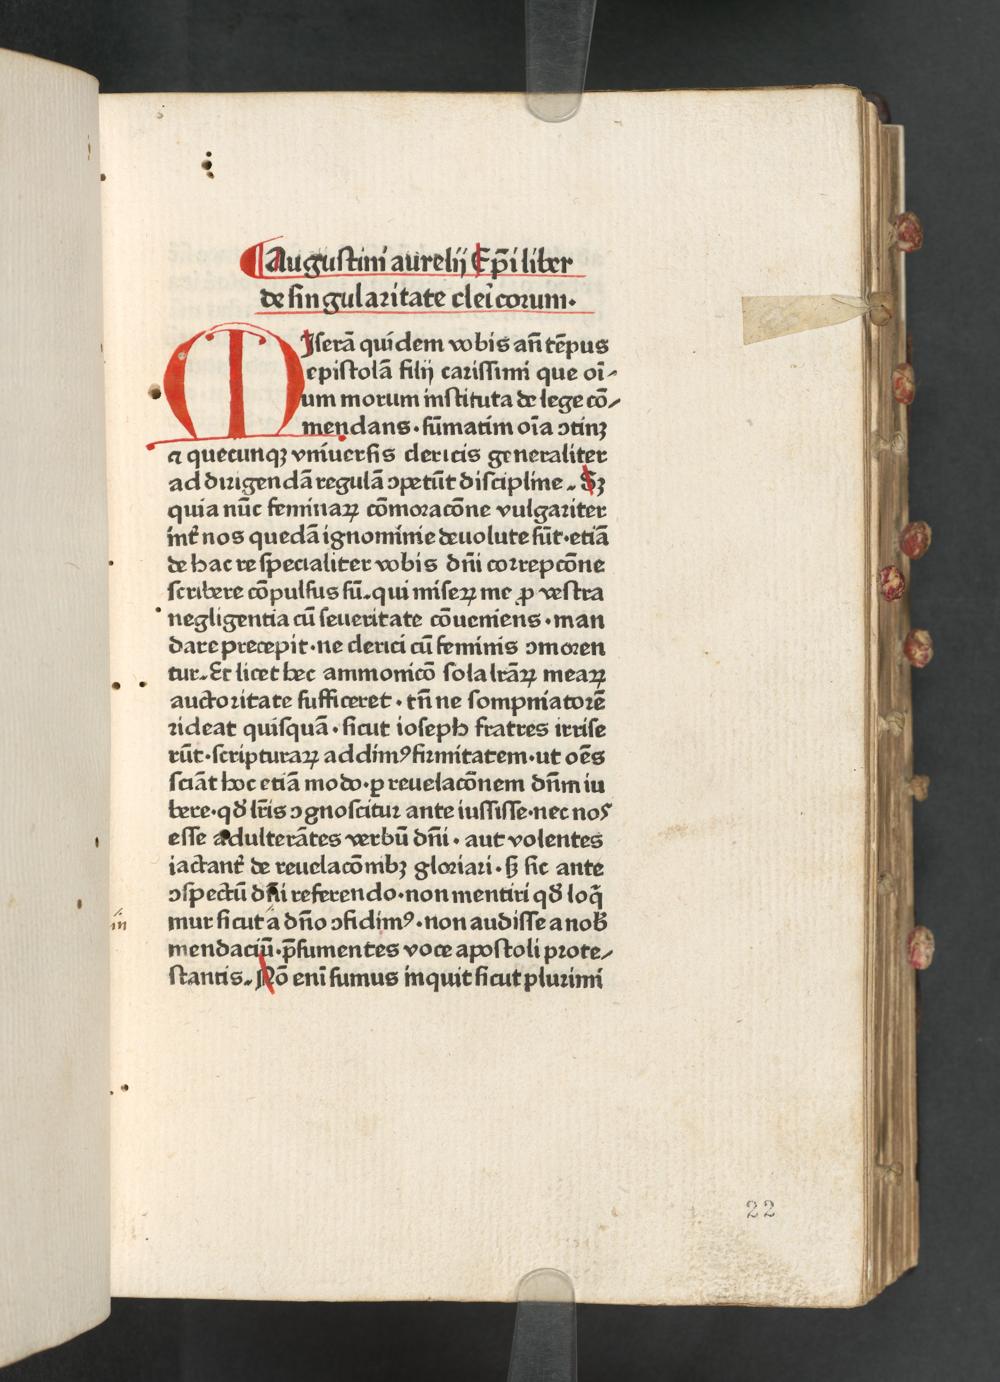 Augustini aurelij Ep̄i liber
de singularitate cleicorum·
MIserā quidem vobis an̄ tēpus
epistolā filij carissimi que oī⸗
um morum instituta de lege cō⸗
mendans · sūmatim oīa ↄtinꝫ
⁊ quecunqꝫ vniuersis clericis generaliter
ad dirigendā regulā ↄpetūt discipline. Sꝫ
quia nūc feminaꝝ cōmoracōne vulgariter
int̄ nos quedā ignominie deuolute sūt·etiā
de hac re specialiter vobis dn̄i correpcōne
scribere cōpulsus sū.qui miseꝝ me ꝓ vestra
negligentia cū seueritate cōueniens · man
dare precepit·ne clerici cū feminis ↄmoren
tur. Et licet hec ammonicō sola lrāꝝ meaꝝ
auctoritate sufficeret · tn̄ ne sompniatorē
rideat quisquā · sicut ioseph fratres irrise
rūt·scripturaꝝ addimꝰ firmitatem·ut oēs
sciāt hoc etiā modo·ꝑ reuelacōnem dn̄m iu
bere·qđ lr̄is ↄgnoscitur ante iussisse·nec nos
esse adulterātes verbū dn̄i · aut volentes
iactant̄ de reuelacōnibꝫ gloriari · sꝫ sic ante
ↄspectū dn̄i referendo·non mentiri qđ loq̄
mur sicut a dn̄o ↄfidimꝰ·non audisse a nob̄
in
mendaciū·p̄sumentes voce apostoli prote⸗
stantis. Nō eni sumus inquit sicut plurimi
22